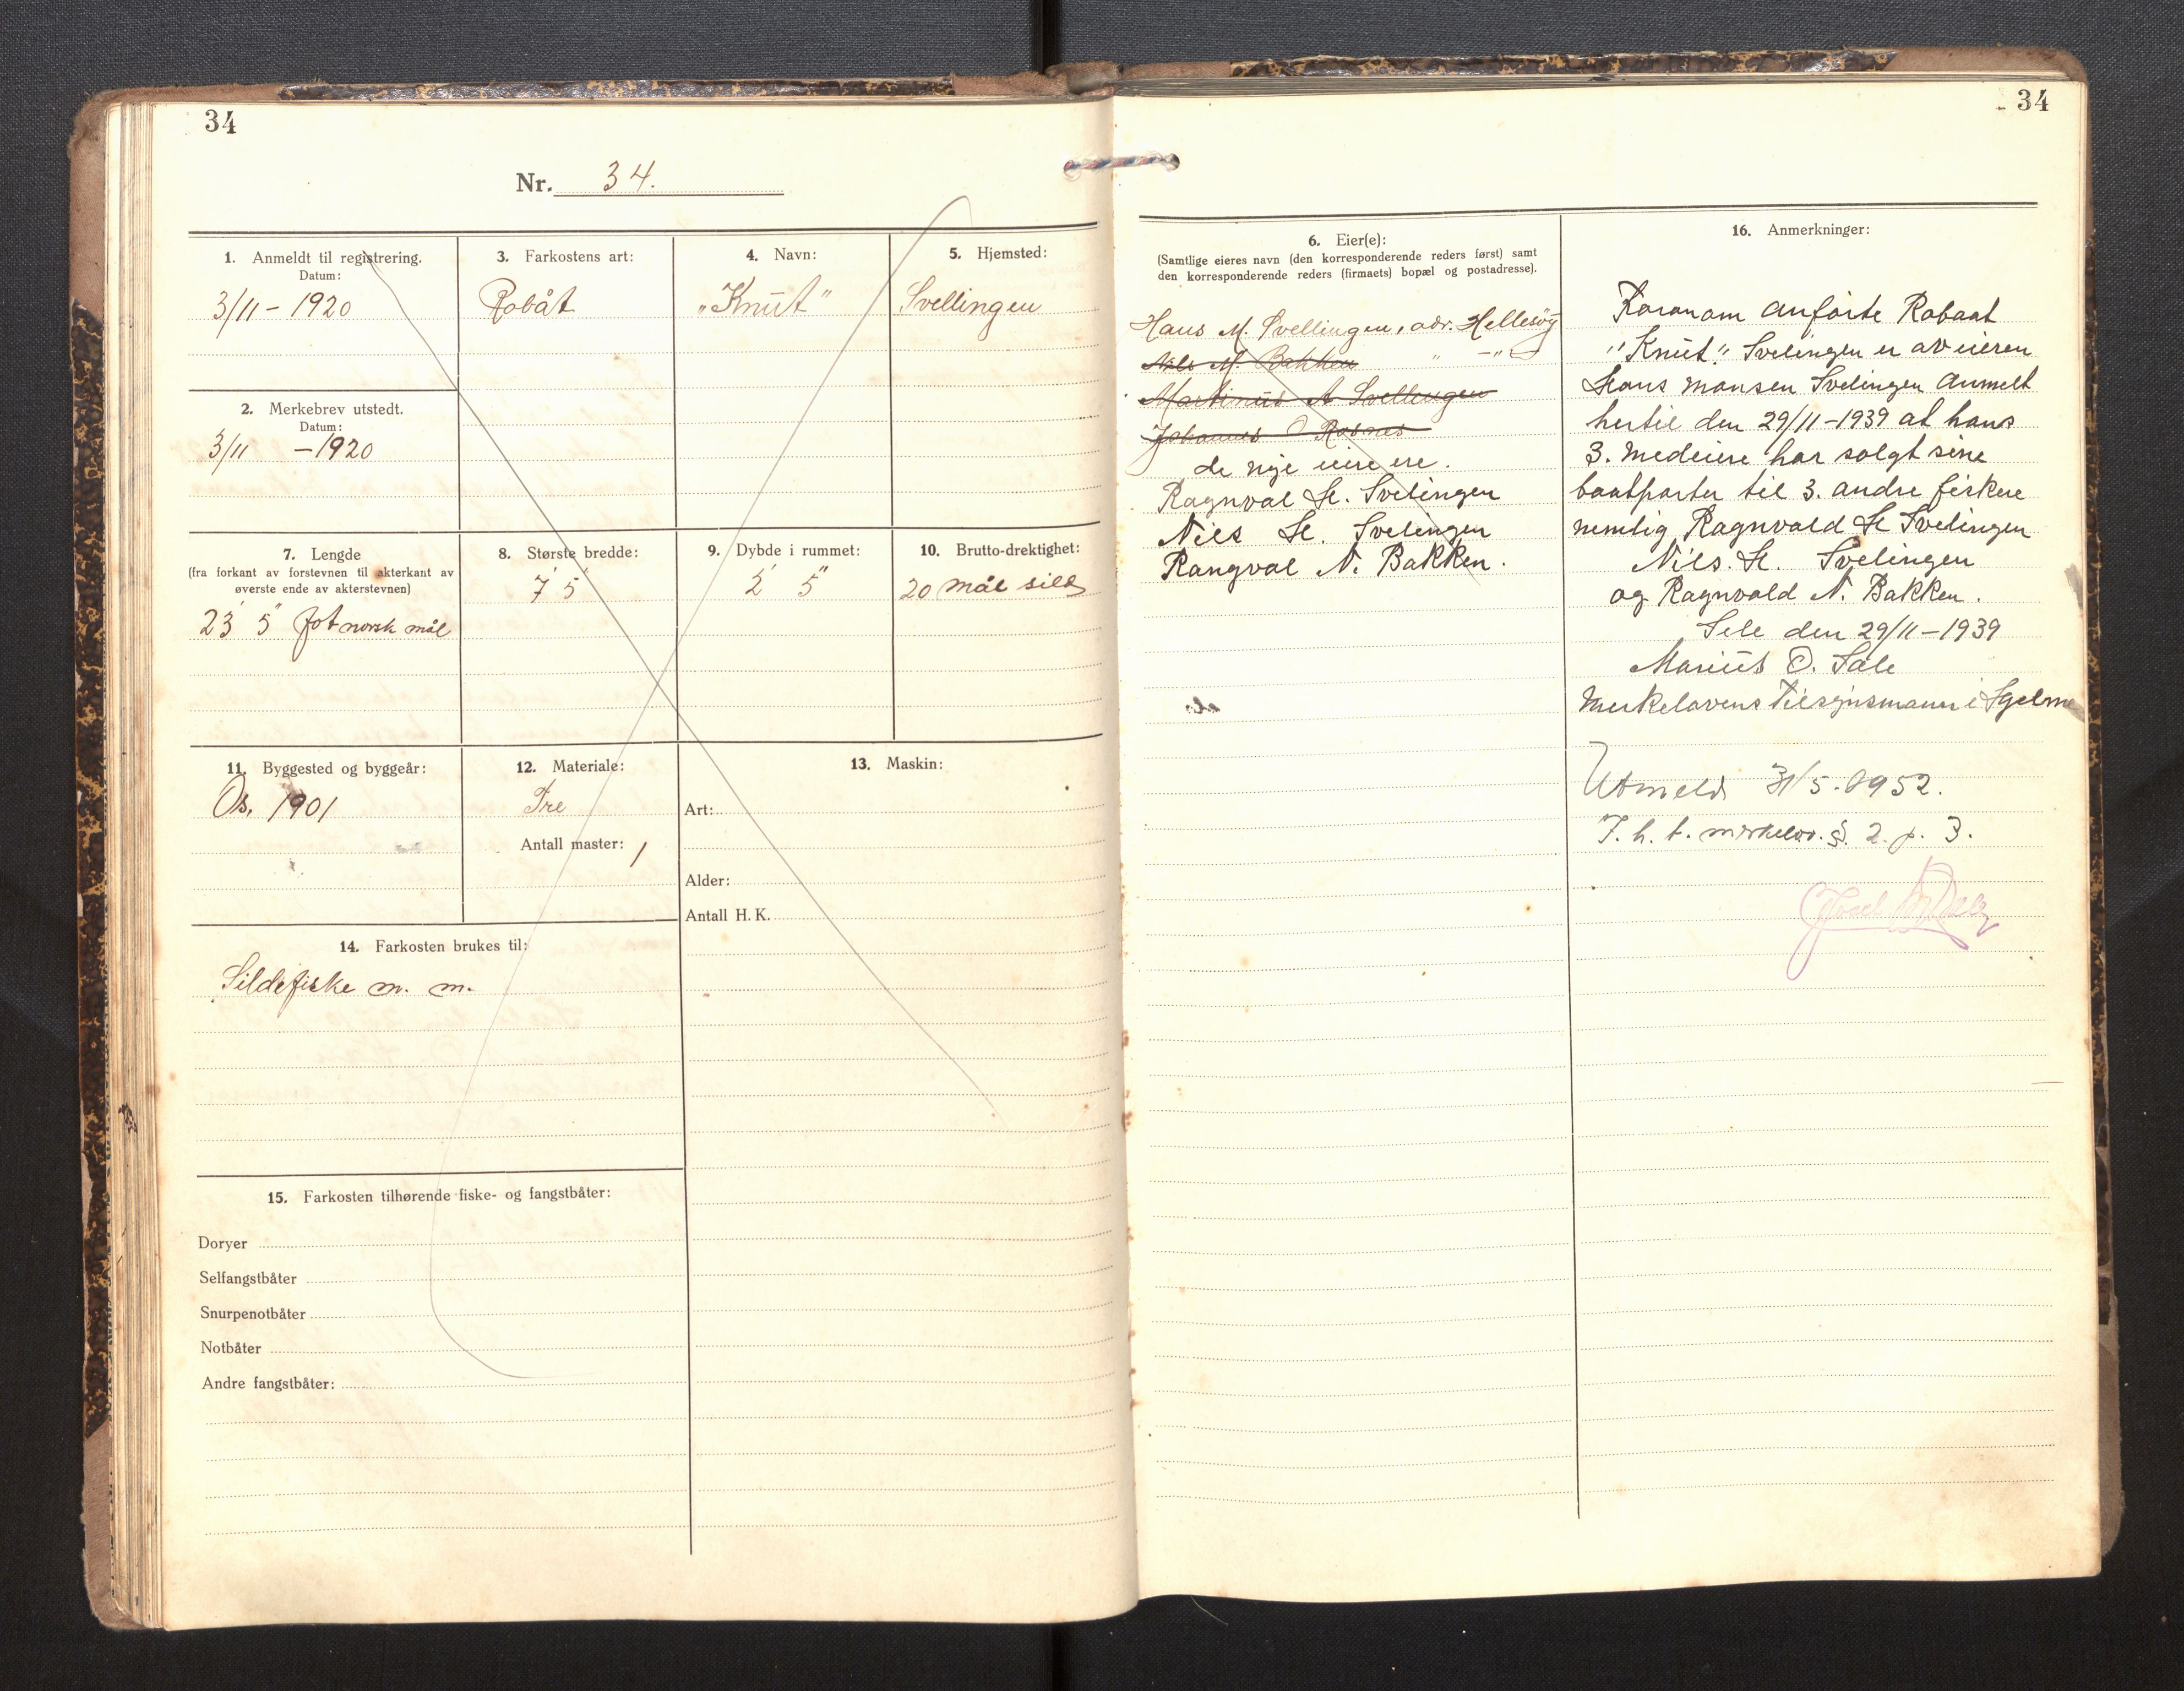 34
Nr. 34.
1. Anmeldt til registrering.
Datum:
3/11 - 1920
3. Farkostens art:
Robåt
4. Navn:
„Knut"
5. Hjemsted:
Svellingen
2. Merkebrev utstedt.
Datum:
3/11 - 1920
7. Lengde
(fra forkant av forstevnen til akterkant av
øverste ende av akterstevnen)
23' 5" fot norsk mål
8. Største bredde:
7' 5"
9. Dybde i rummet:
2' 5"
10. Brutto-drektighet:
20 mål sild
11. Byggested og byggeår:
Os, 1901
12. Materiale:
Tre
Antall master: 1
13. Maskin:
Art:
Alder:
Antall H. K.
14. Farkosten brukes til:
Sildefiske m. m.
15. Farkosten tilhørende fiske- og fangstbåter:
Doryer
Selfangstbåter
Snurpenotbåter
Notbåter
Andre fangstbåter:
34
6. Eier(e):
(Samtlige eieres navn (den korresponderende reders først) samt
den korresponderende reders (firmaets) bopæl og postadresse).
Hans M. Svellingen, adr. Hellesöy
Nils M. Bakken " -"-
Martinus A Svellingen
Johannes O
de nye eiere ere.
Ragnval H. Svelingen
Nils H. Svelingen
Rangval N. Bakken.
16. Anmerkninger:
Foranom anförte Robaat
"Knut" Svelingen er av eieren
Hans Monsen Svelingen Anmelt
hertil den 29/11-1939 at hans
3. Medeiere har solgt sine
baatparter til 3. andre fiskere
nemlig Ragnvald H Svelingen
Nils. H. Svelingen
og Ragnvald N. Bakken.
Sele den 29/11-1939
Marius O. Sæle
Merkelovens Tilsynsmann i Hjelme
Utmeld 31/5. 1952.
I. h. t. merkelov. §. 2. p. 3.